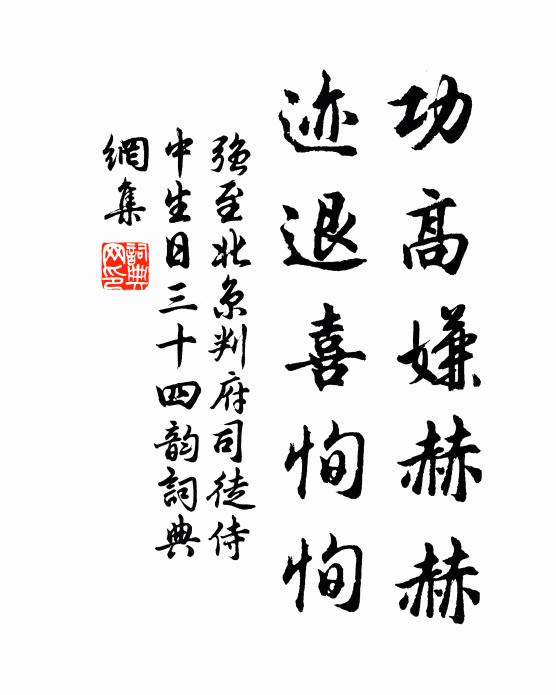 功高嫌赫赫
迹退喜恂恂
強至北京判府司徒侍
中生日三十四韵詞典
網集
詞典
网印